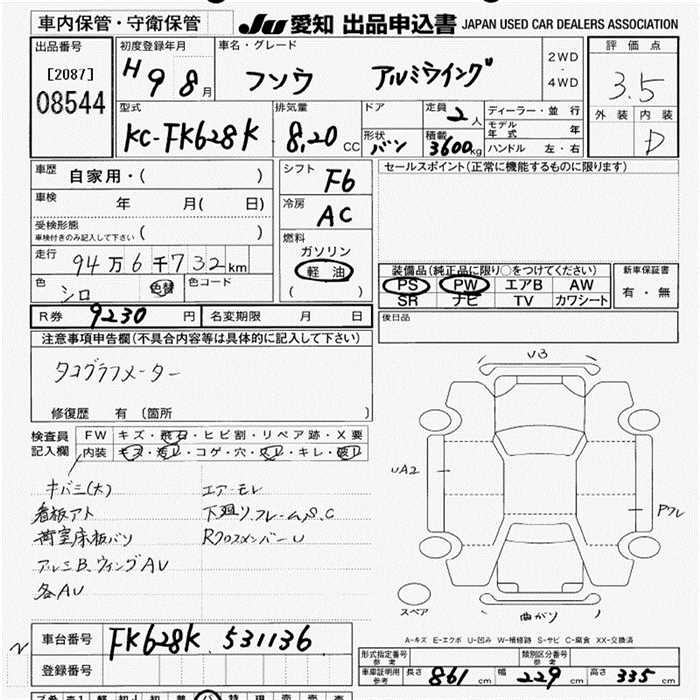 車内保管・守衛保管
JU 愛知 出品申込書 JAPAN USED CAR DEALERS ASSOCIATION
出品番号
[2087]
08544
初度登録年月
H 9 8月
車名・グレード
フソウ アルミウイング
2WD
・
4WD
評価点
3.5
外装 内装
D
型式
KC-FK628K
排気量
8,20 CC
ドア
形状 バン
定員 2人
積載 3600kg
ディーラー・並行
モデル年式 年
ハンドル 左・右
車歴 自家用・( )
車検 年 月( 日)
受検形態
車検付きのみ記入して下さい ( )
走行 94万6千732km
色 シロ 色替 色コード
R券 9230円 名変期限 月 日
シフト F6
冷房 AC
燃料
ガソリン
軽油
( )
セールスポイント(正常に機能するものに限ります)
装備品(純正品に限り○をつけてください)
PS PW エアB AW
SR ナビ TV カワシート
新車保証書
有・無
後日品
注意事項申告欄(不具合内容等は具体的に記入して下さい)
タコグラフメーター
修復歴 有〔箇所 〕
検査員記入欄
FW キズ・飛石・ヒビ割・リペア跡・X要
内装 キズ・汚レ・コゲ・穴・スレ・キレ・破レ
キバミ(大) エアーモレ
看板アト 下廻リ、フレームS、C
荷室床板バリ RクロスメンバーU
アルミB、ウィングAU
各AU
U3
UA2
Pワレ
スペア
曲がり
A-キズ E-エクボ U-凹み W-補修跡 S-サビ C-腐食 XX-交換済
車台番号 FK628K 531136
登録番号
形式指定番号 参考
類別区分番号 参考
車庫証明用 参考 長さ 861cm 幅 229cm 高さ 335cm